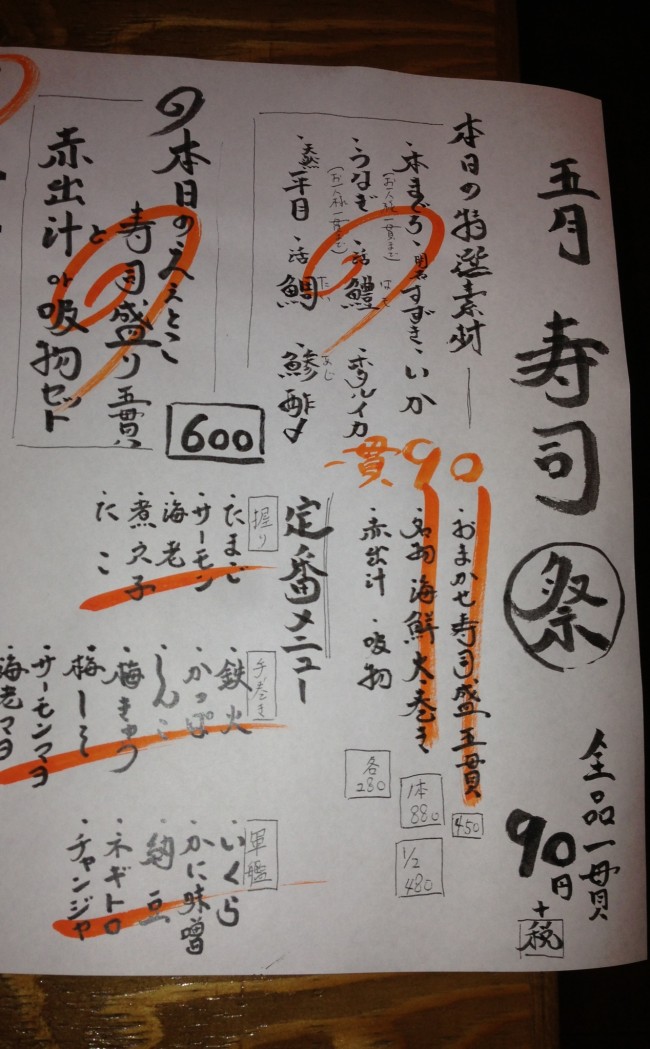 五月 寿司 祭
全品一貫
90円
+税
本日の特選素材
・本まぐろ ・すずき ・いか
(お一人様一貫まで)
・うなぎ ・活鱧 はも ・ホタルイカ
(お一人様一貫まで)
・天然平目 ・活鯛 たい ・鯵酢〆 あじ
一貫90
おまかせ寿司盛五貫 450
名物海鮮太巻き 1本 880 1/2 480
赤出汁 吸物 各280
本日の
寿司盛り五貫
と
赤出汁or吸物セット
600
定番メニュー
握り
・たまご
・サーモン
・海老
・煮穴子
・たこ
手巻き
・鉄火
・かっぱ
・しんこ
・梅きゅう
・梅しそ
・サーモンマヨ
・海老マヨ
軍艦
・いくら
・かに味噌
・納豆
・ネギトロ
・チャンジャ